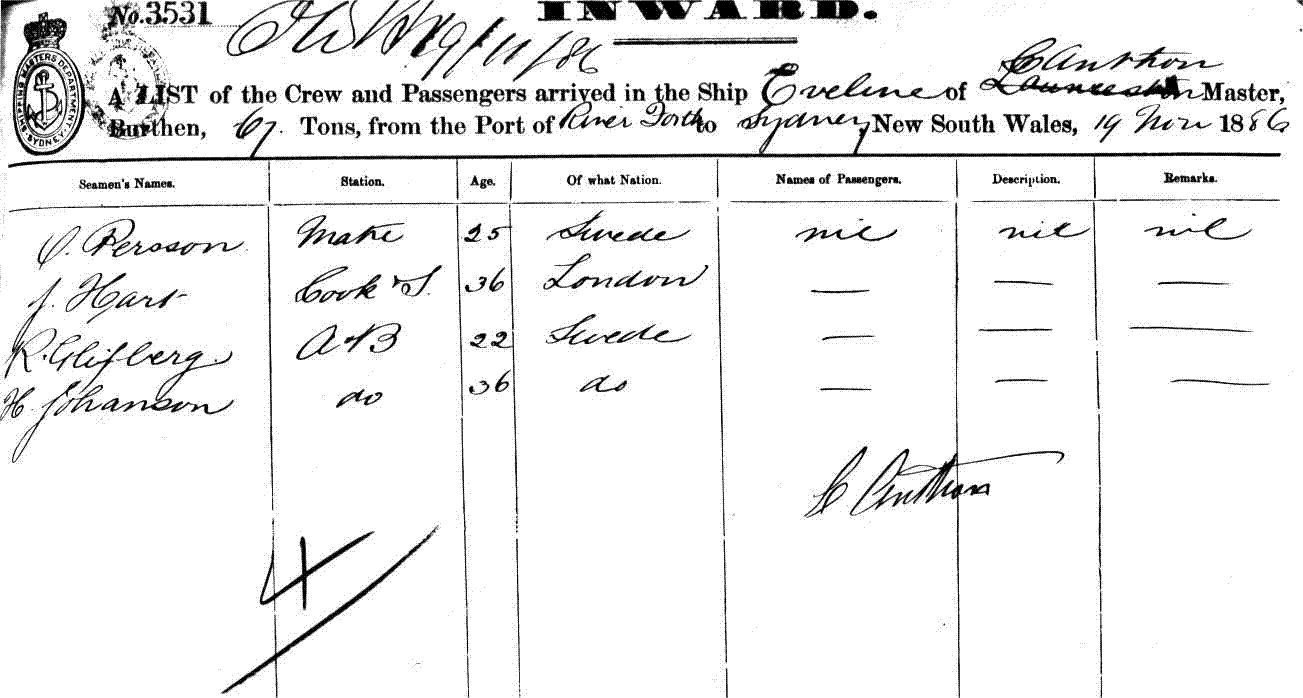 No. 3531 INWARD.
19/11/86
C Anthon
A LIST of the Crew and Passengers arrived in the Ship Eveline of Launceston Master,
Burthen, 67 Tons, from the Port of River Forth to Sydney, New South Wales, 19 Nov 1886
SHIPPING MASTERS DEPARTMENT SYDNEY
Seamen's Names. Station. Age. Of what Nation. Names of Passengers. Description. Remarks.
O. Persson Mate 25 Swede nil nil nil
J. Hart Cook & S. 36 London — — —
R. berg AB 22 Swede — — —
H. Johanson do 36 do — — —
C Anthon
4